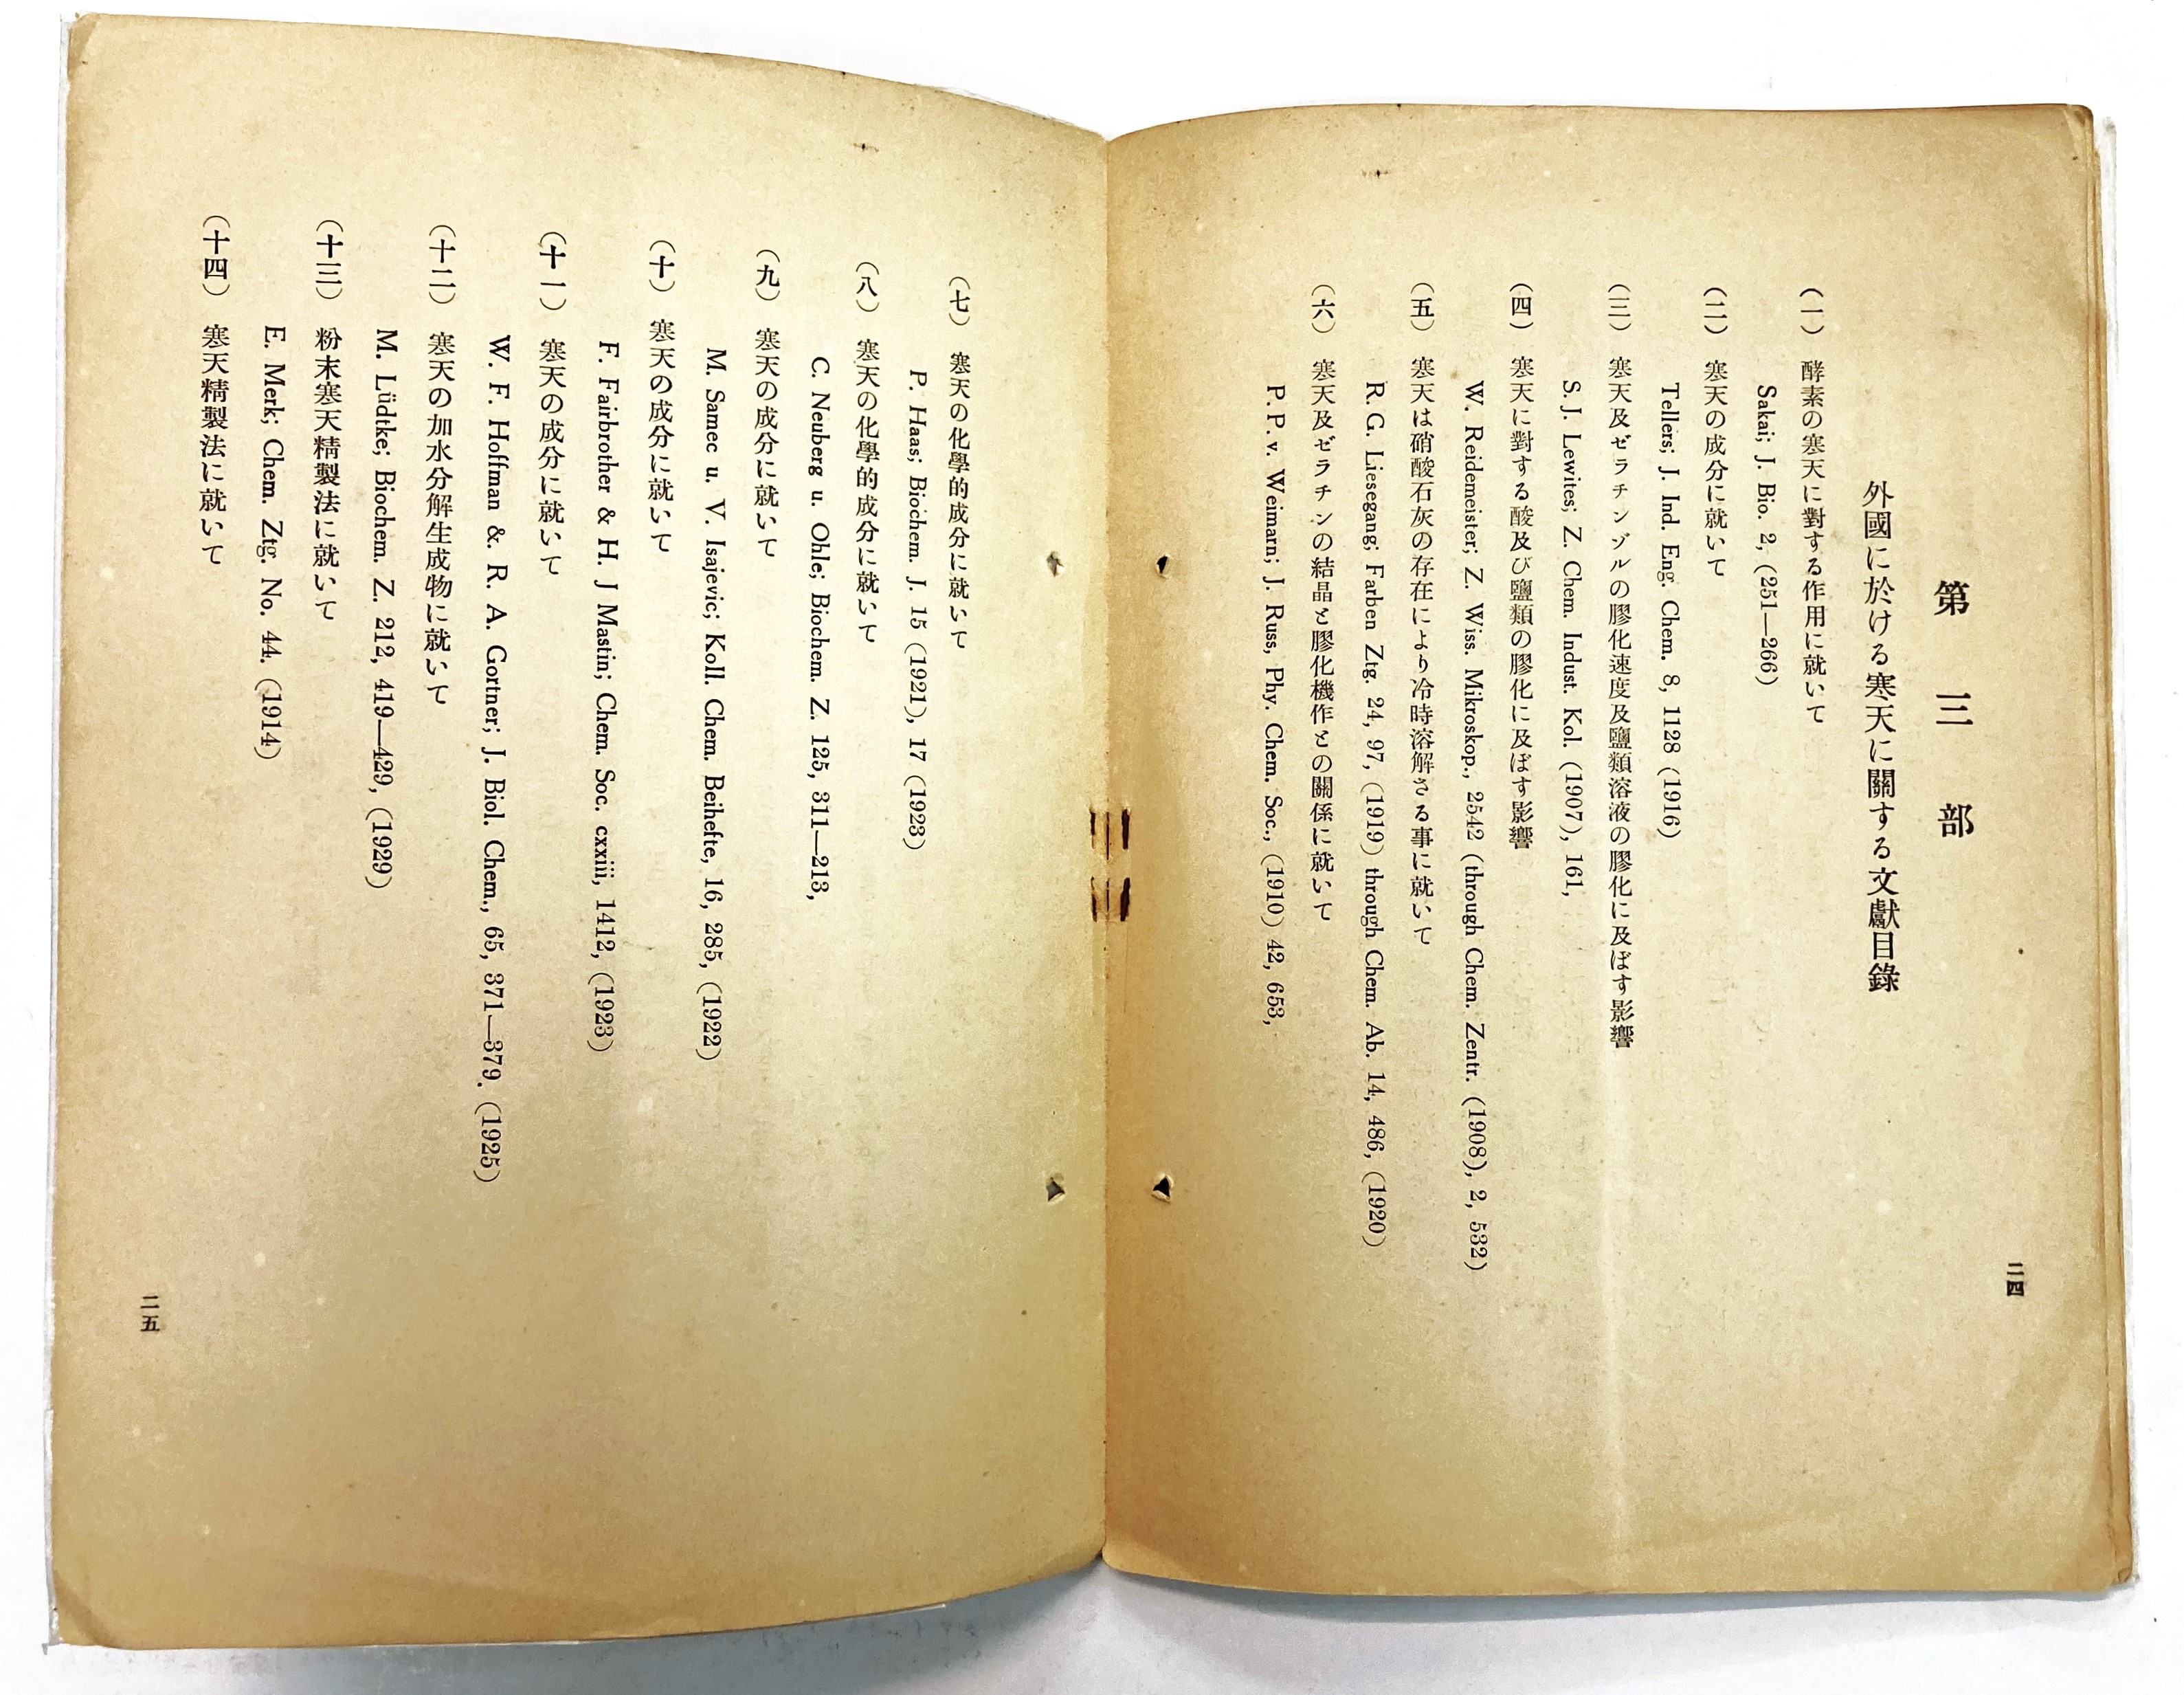 第三部
外國に於ける寒天に關する文獻目錄
(一) 酵素の寒天に對する作用に就いて
Sakai; J. Bio. 2, (251—266)
(二) 寒天の成分に就いて
Tellers; J. Ind. Eng. Chem. 8, 1128 (1916)
(三) 寒天及ゼラチンゾルの膠化速度及鹽類溶液の膠化に及ぼす影響
S. J. Lewites; Z. Chem. Indust. Kol. (1907), 161,
(四) 寒天に對する酸及び鹽類の膠化に及ぼす影響
W. Reidemeister; Z. Wiss. Mikroskop., 2542 (through Chem. Zentr. (1908), 2, 532)
(五) 寒天は硝酸石灰の存在により冷時溶解さる事に就いて
R. G. Liesegang; Farben Ztg. 24, 97, (1919) through Chem. Ab. 14, 486, (1920)
(六) 寒天及ゼラチンの結晶と膠化機作との關係に就いて
P. P. v. Weimarn; J. Russ, Phy. Chem. Soc., (1910) 42, 653,
二四
(七) 寒天の化學的成分に就いて
P. Haas; Biochem. J. 15 (1921), 17 (1923)
(八) 寒天の化學的成分に就いて
C. Neuberg u. Ohle; Biochem. Z. 125, 311—213,
(九) 寒天の成分に就いて
M. Samec u. V. Isajevic; Koll. Chem. Beihefte, 16, 285, (1922)
(十) 寒天の成分に就いて
F. Fairbrother & H. J Mastin; Chem. Soc. cxxiii, 1412, (1923)
(十一) 寒天の成分に就いて
W. F. Hoffman &. R. A. Gortner; J. Biol. Chem., 65, 371—379. (1925)
(十二) 寒天の加水分解生成物に就いて
M. Lüdtke; Biochem. Z. 212, 419—429, (1929)
(十三) 粉末寒天精製法に就いて
E. Merk; Chem. Ztg. No. 44. (1914)
(十四) 寒天精製法に就いて
二五